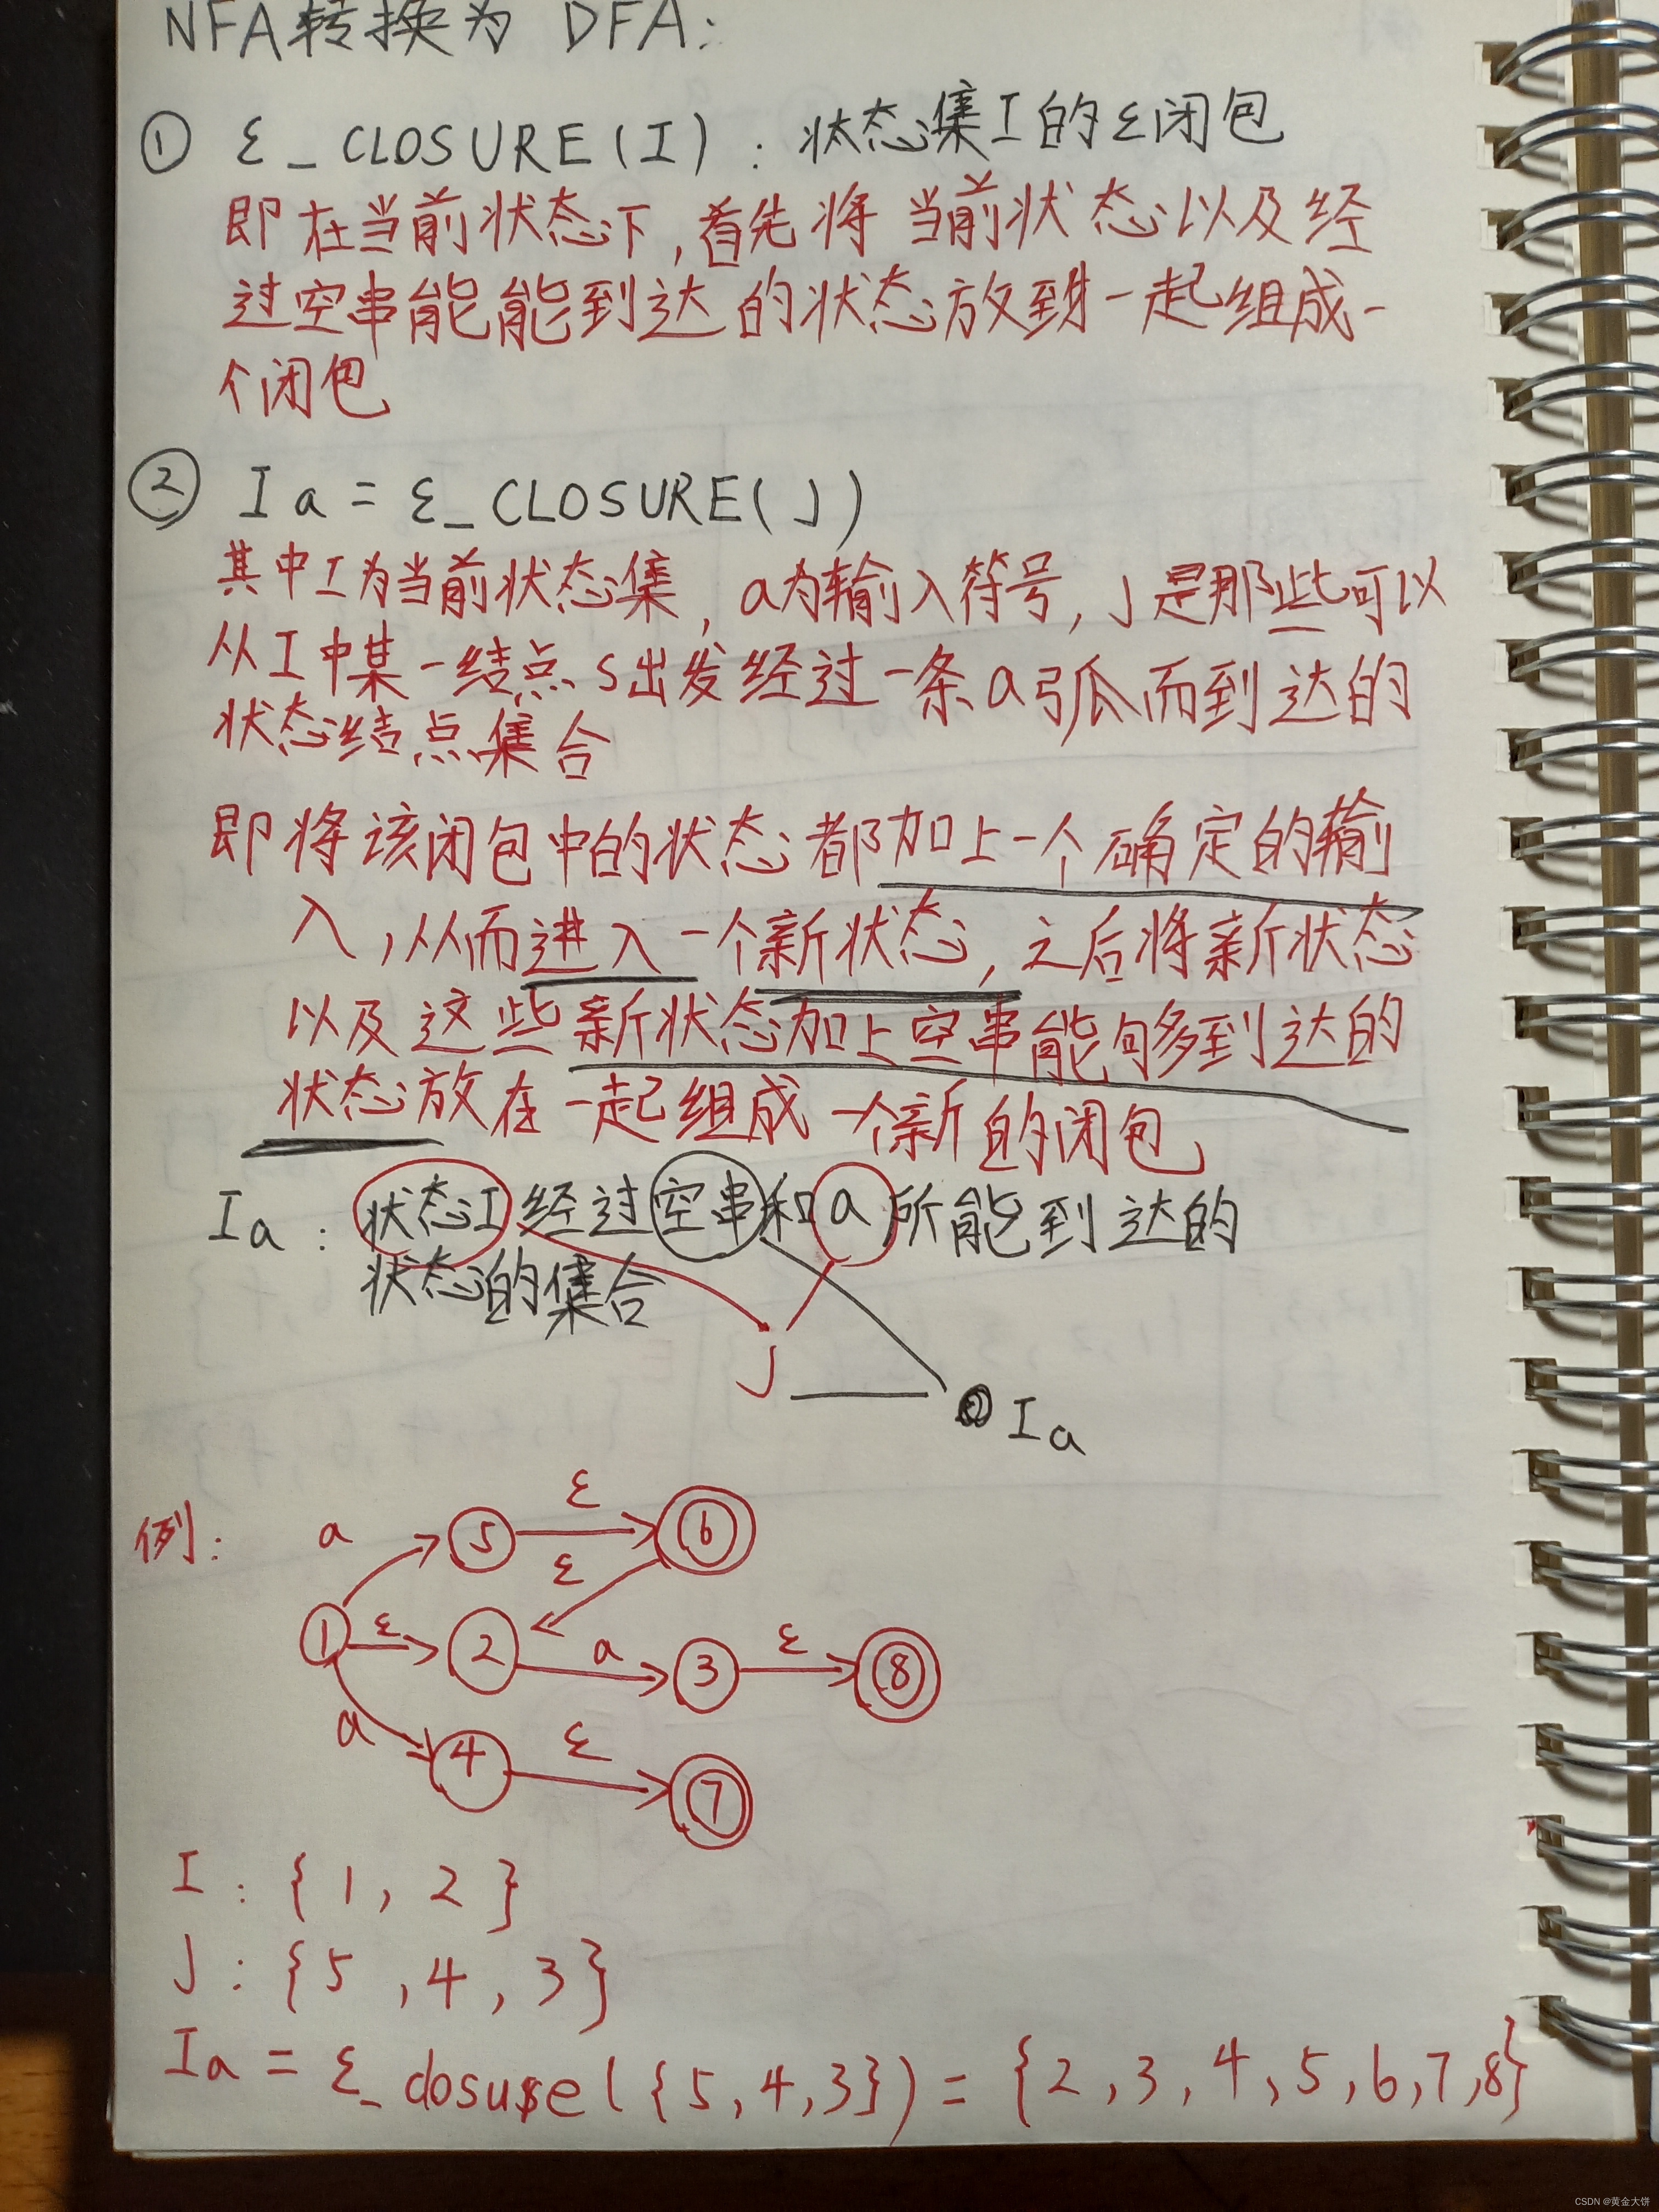 NFA转换为 DFA:
① ε_CLOSURE(I): 状态集I的ε闭包
即在当前状态下,首先将当前状态以及经
过空串能能到达的状态放到一起组成一
个闭包
② Ia = ε_CLOSURE(J)
其中I为当前状态集,a为输入符号,J是那些可以
从I中某一结点S出发经过一条a弧而到达的
状态结点集合
即将该闭包中的状态都加上一个确定的输
入,从而进入一个新状态,之后将新状态
以及这些新状态加上空串能够到达的
状态放在一起组成一个新的闭包
Ia: 状态I经过空串和a所能到达的
状态的集合
J
Ia
例:
a
5
ε
6
ε
1
ε
2
a
3
ε
8
a
4
ε
7
I: {1, 2}
J: {5, 4, 3}
Ia = ε_closure({5,4,3}) = {2,3,4,5,6,7,8}
CSDN @黄金大饼